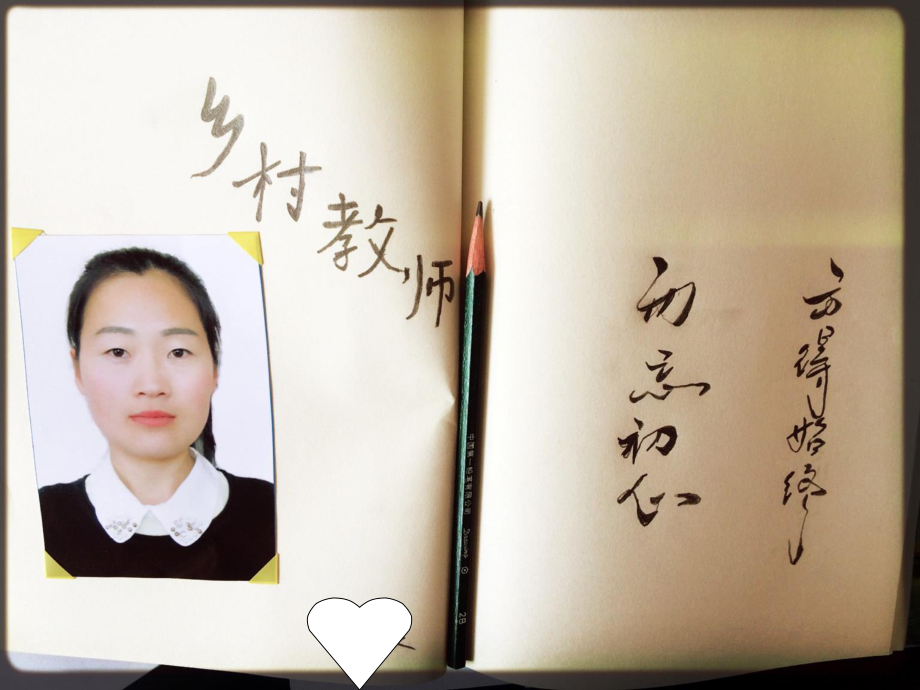 乡村教师
中国第一铅笔有限公司
2B
勿忘初心
方得始终